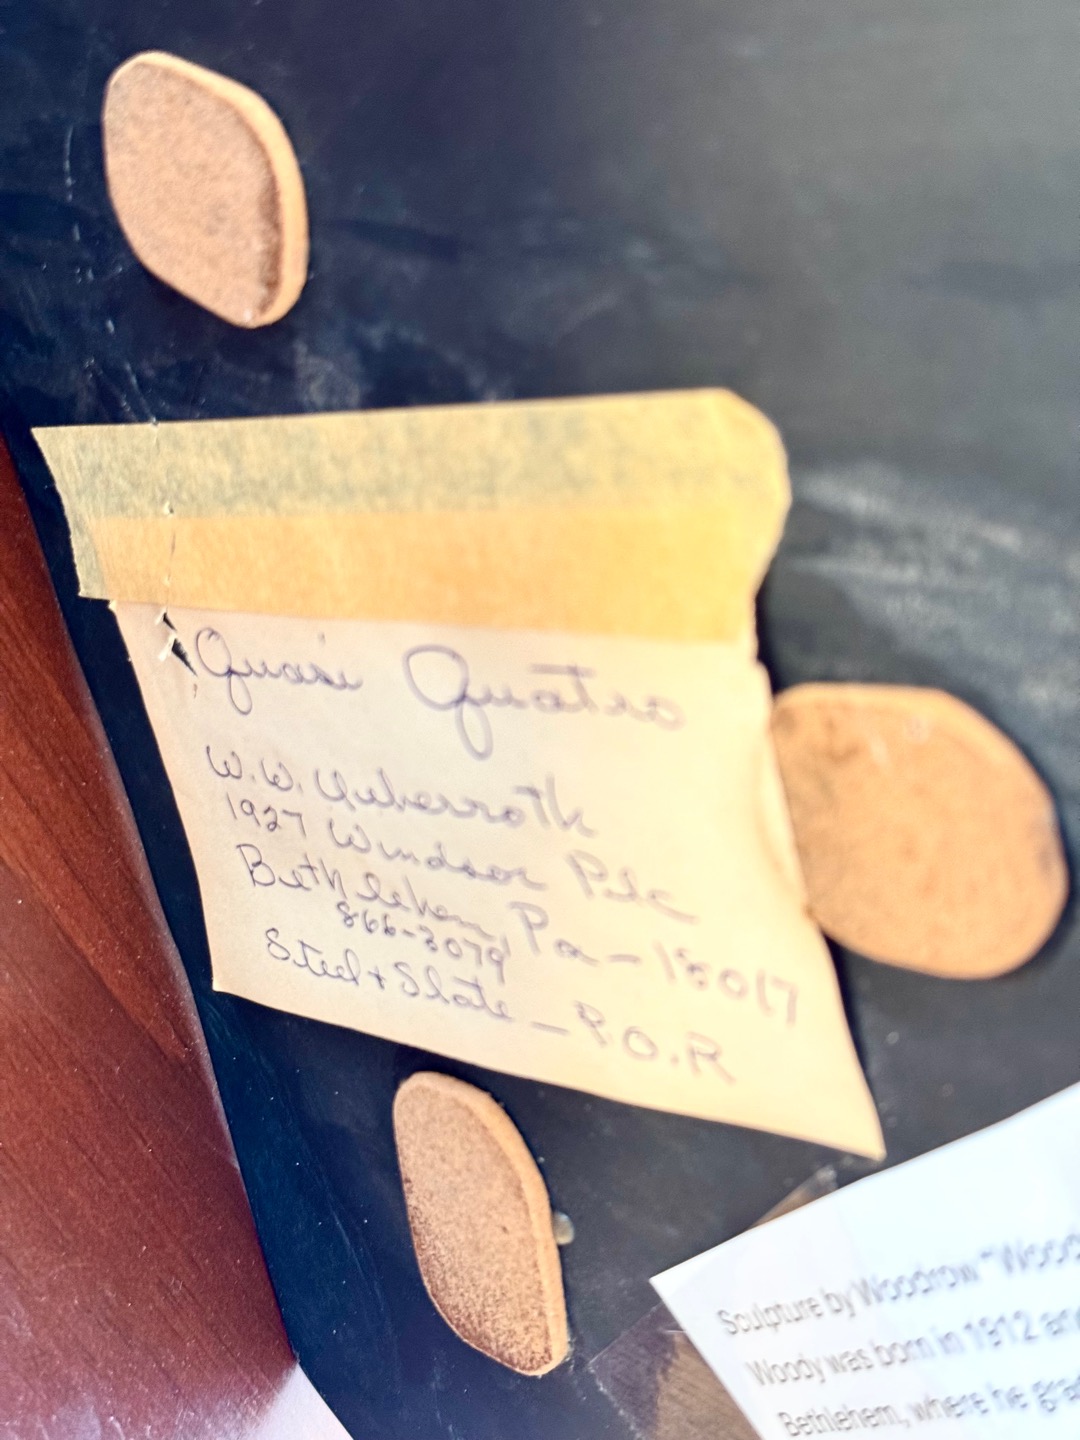 Quasi Quatro
W.W. Ueberroth
1927 Windsor Plc
Bethlehem, Pa - 18017
866-3079
Steel + Slate - P.O.R
Sculpture by Woodrow "Wood
Woody was born in 1912 and
Bethlehem, where he grad